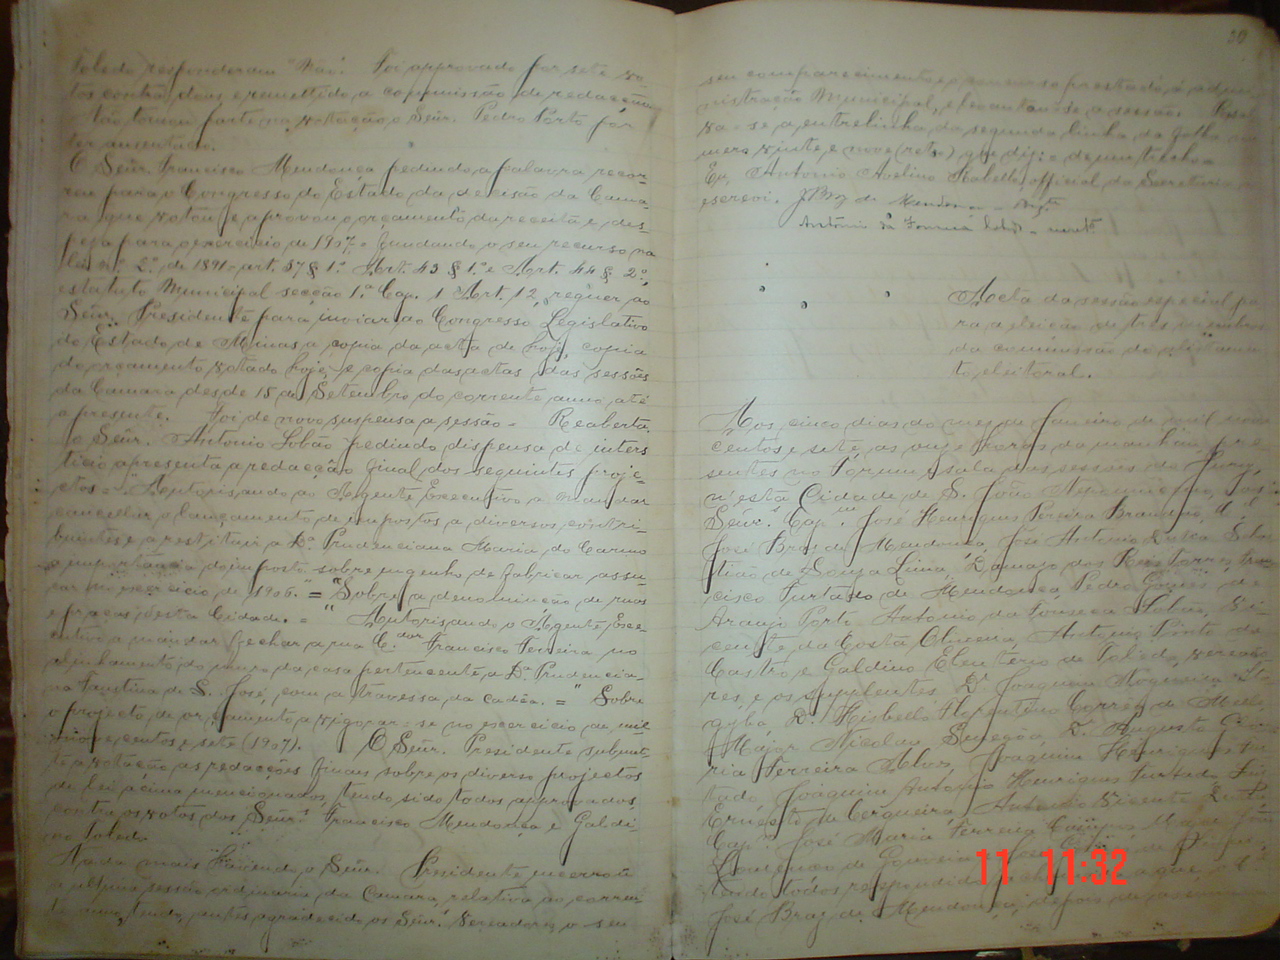 Toledo responderam "Não". Foi approvado por sete vo-
tos contra dous e remettido a commissão de redacção
Não tomou parte na votação o Señr. Pedro Porto por
ter ausentado.
O Señr. Francisco Mendonça pedindo a palavra recor-
reu para o Congresso do Estado da decisão da Cama-
ra que votou e aprovou o orçamento da receita e des-
peza para o exercicio de 1907. Fundando o seu recurso na
lei nº 2º, de 1891 - art. 37 § 1º Art. 43 § 1º e Art. 44 § 2º,
estatuto Municipal secção 1ª Cap. 1 Art. 12, requer ao
Señr. Presidente para inviar ao Congresso Legislativo
do Estado de Minas a copia da acta de hoje, copia
do orçamento votado hoje, e copia das actas das sessões
da Camara desde 15 de Setembro do corrente anno até
a presente. Foi de novo suspensa a sessão - Reaberta,
o Señr. Antonio Lobão pedindo dispensa de inters
ticio apresenta a redacção final dos seguintes proje-
ctos - "Autorisando ao Agente Executivo a mandar
cancellar o lançamento de impostos a diversos contri-
buintes e a restituir a Dª Prudenciana Maria do Carmo
a importancia do imposto sobre engenho de fabricar assu-
car no exercicio de 1906. = "Sobre a denominação de ruas
e praças desta Cidade. = "Autorisando o Agente Exe-
cutivo a mandar fechar a rua C.dor Francisco Ferreira no
alinhamento do muro da casa pertencente a Dª Prudencia-
na Faustina de S. José, com a travessa da cadêa. = " Sobre
o projecto de orçamento a vigorar-se no exercicio de mil
novecentos e sete (1907). O Señr. Presidente submet-
te a votação as redacções finaes sobre os diverso projectos
de lei acima mencionados, tendo sido todos approvados
contra os votos dos Señrs Francisco Mendonça e Galdi-
no Toledo.
Nada mais havendo o Señr. Presidente encerrou
a ultima sessão ordinaria da Camara, relativa ao corren
te anno, tendo, antes agradecido os Señrs Vereadores o seu
30
seu comparecimento e o concurso prestado á admi-
nistração Municipal, e levantou-se a sessão. Resal
va-se a entrelinha da segunda linha da folha nu
mero vinte e nove (reto) que diz: - de um trecho =
Eu, Antonio Avelino Rabello, official da Secretaria o
escrevi. J Braz de Mendonça
Antônio da Fonseca Lobão
Acta da sessão especial pa
ra a eleição de tres membros
da commissão do alistamen
to eleitoral.
Aos cinco dias do mez de Janeiro de mil nove
centos e sete, as onze horas da manhã, pre
sentes no Fórum, sala das sessões do Jury,
n'esta Cidade de S. João Nepomuceno, os
Señrs Cap.m José Henriques Pereira Brandão,
José Braz de Mendonça, José Antonio Lisboa, Seba
tião de Souza Lima, Damaso dos Reis Torres, Fran
cisco Furtado de Mendonça, Pedro Gomes de
Araujo Porto, Antonio da Fonseca Lobão, Vi-
cente da Costa Oliveira, Antonio Pinto de
Castro e Galdino Eleuterio de Toledo, vereado
res, e os supplentes Dr. Joaquim Nogueira
Dr. Hisbello Florentino Corrêa de Mello,
Major Nicolau Dr. Augusto Glo
ria Ferreira Alves, Joaquim Henriques Fur
tado, Joaquim Antonio Henriques Furtado,
Ernesto de Cerqueira, Antonio Vicente
Cap. José Maria Ferreira Campos Major
Lourenço de
tendo todos respondido a que, o
José Braz de Mendonça, depois de
11 11:32